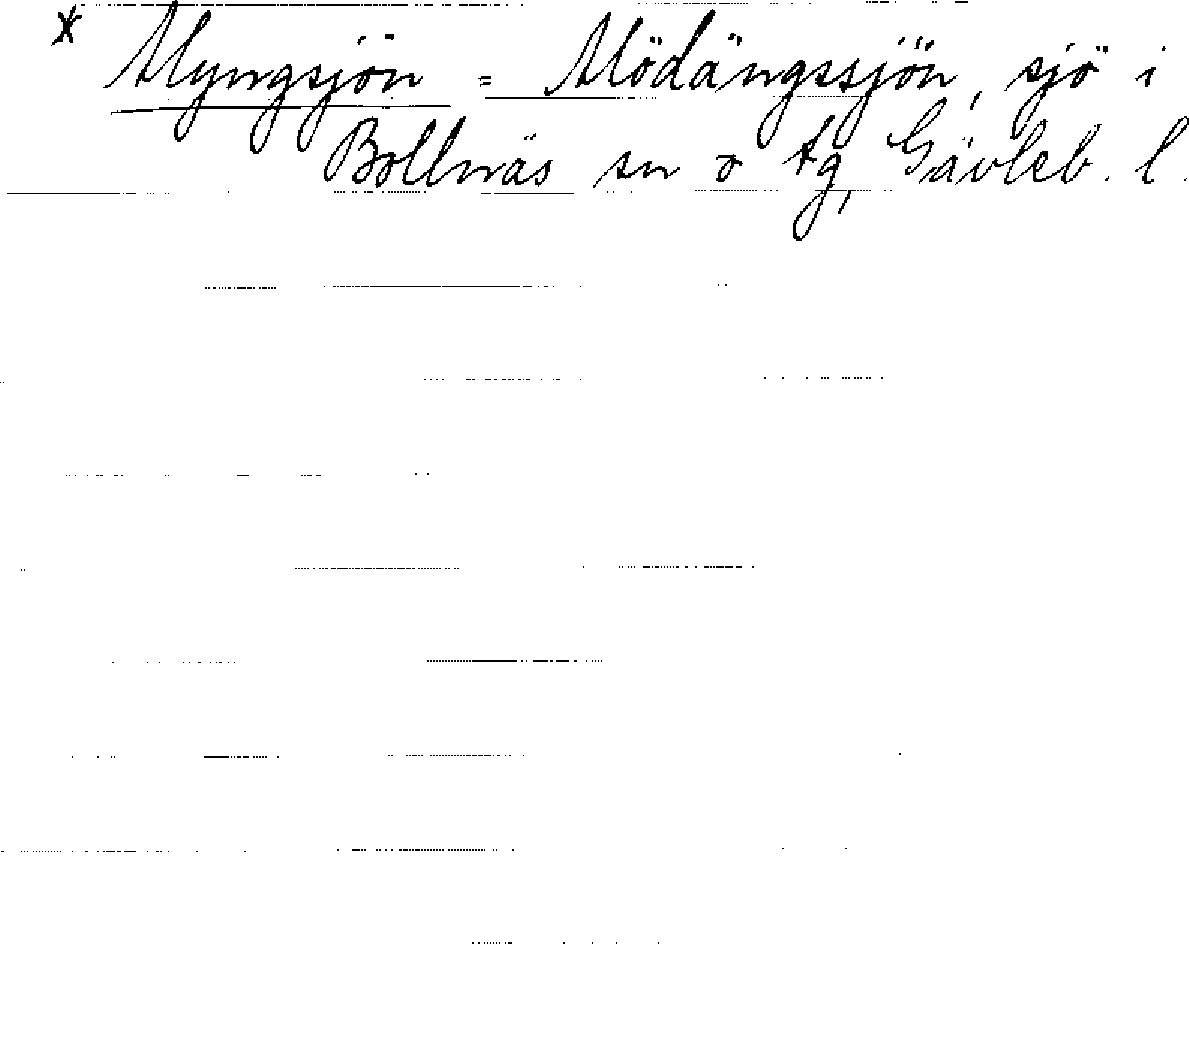 * Myngsjön = Mödängssjön, sjö i
Bollnäs sn o tg, Gävleb. l.